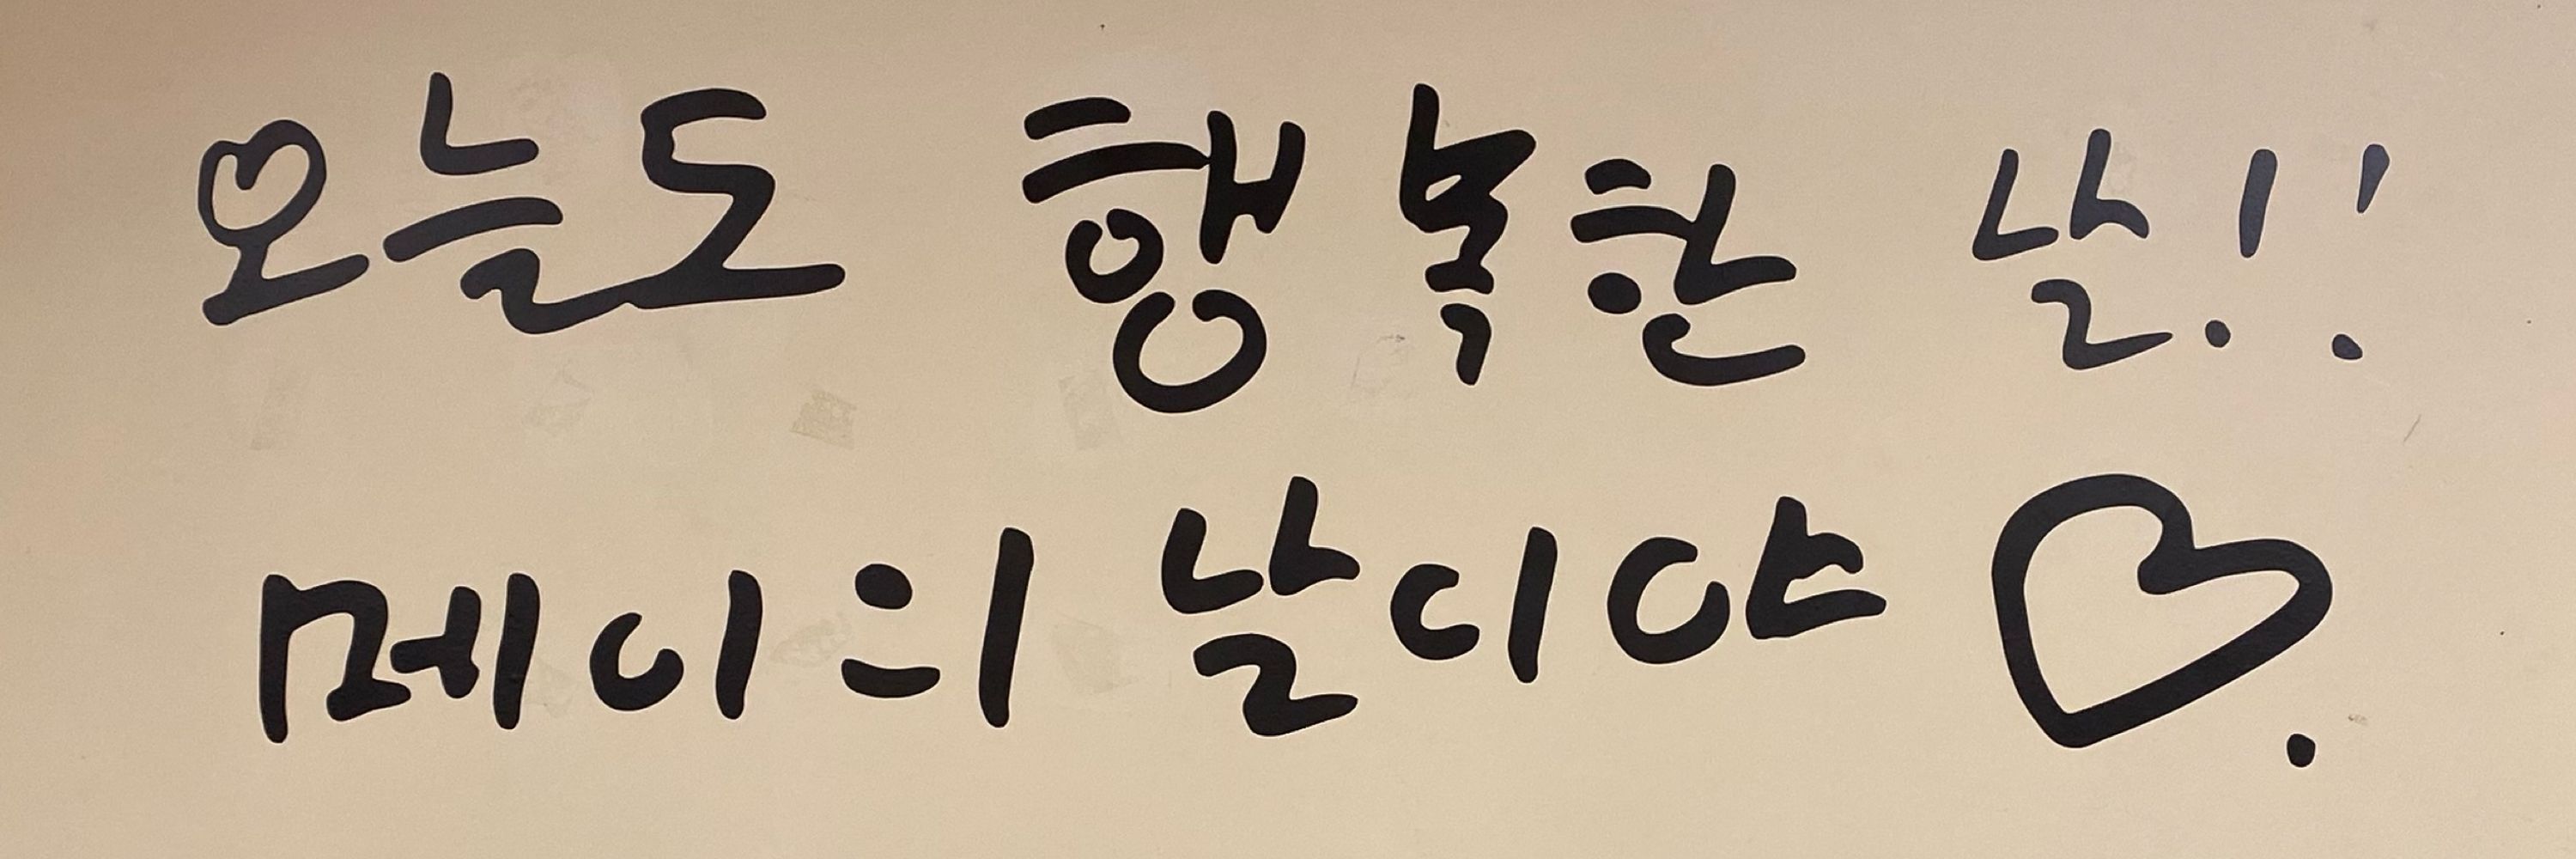 오늘도 행복한 날!!
메이의 날이야 ♡.